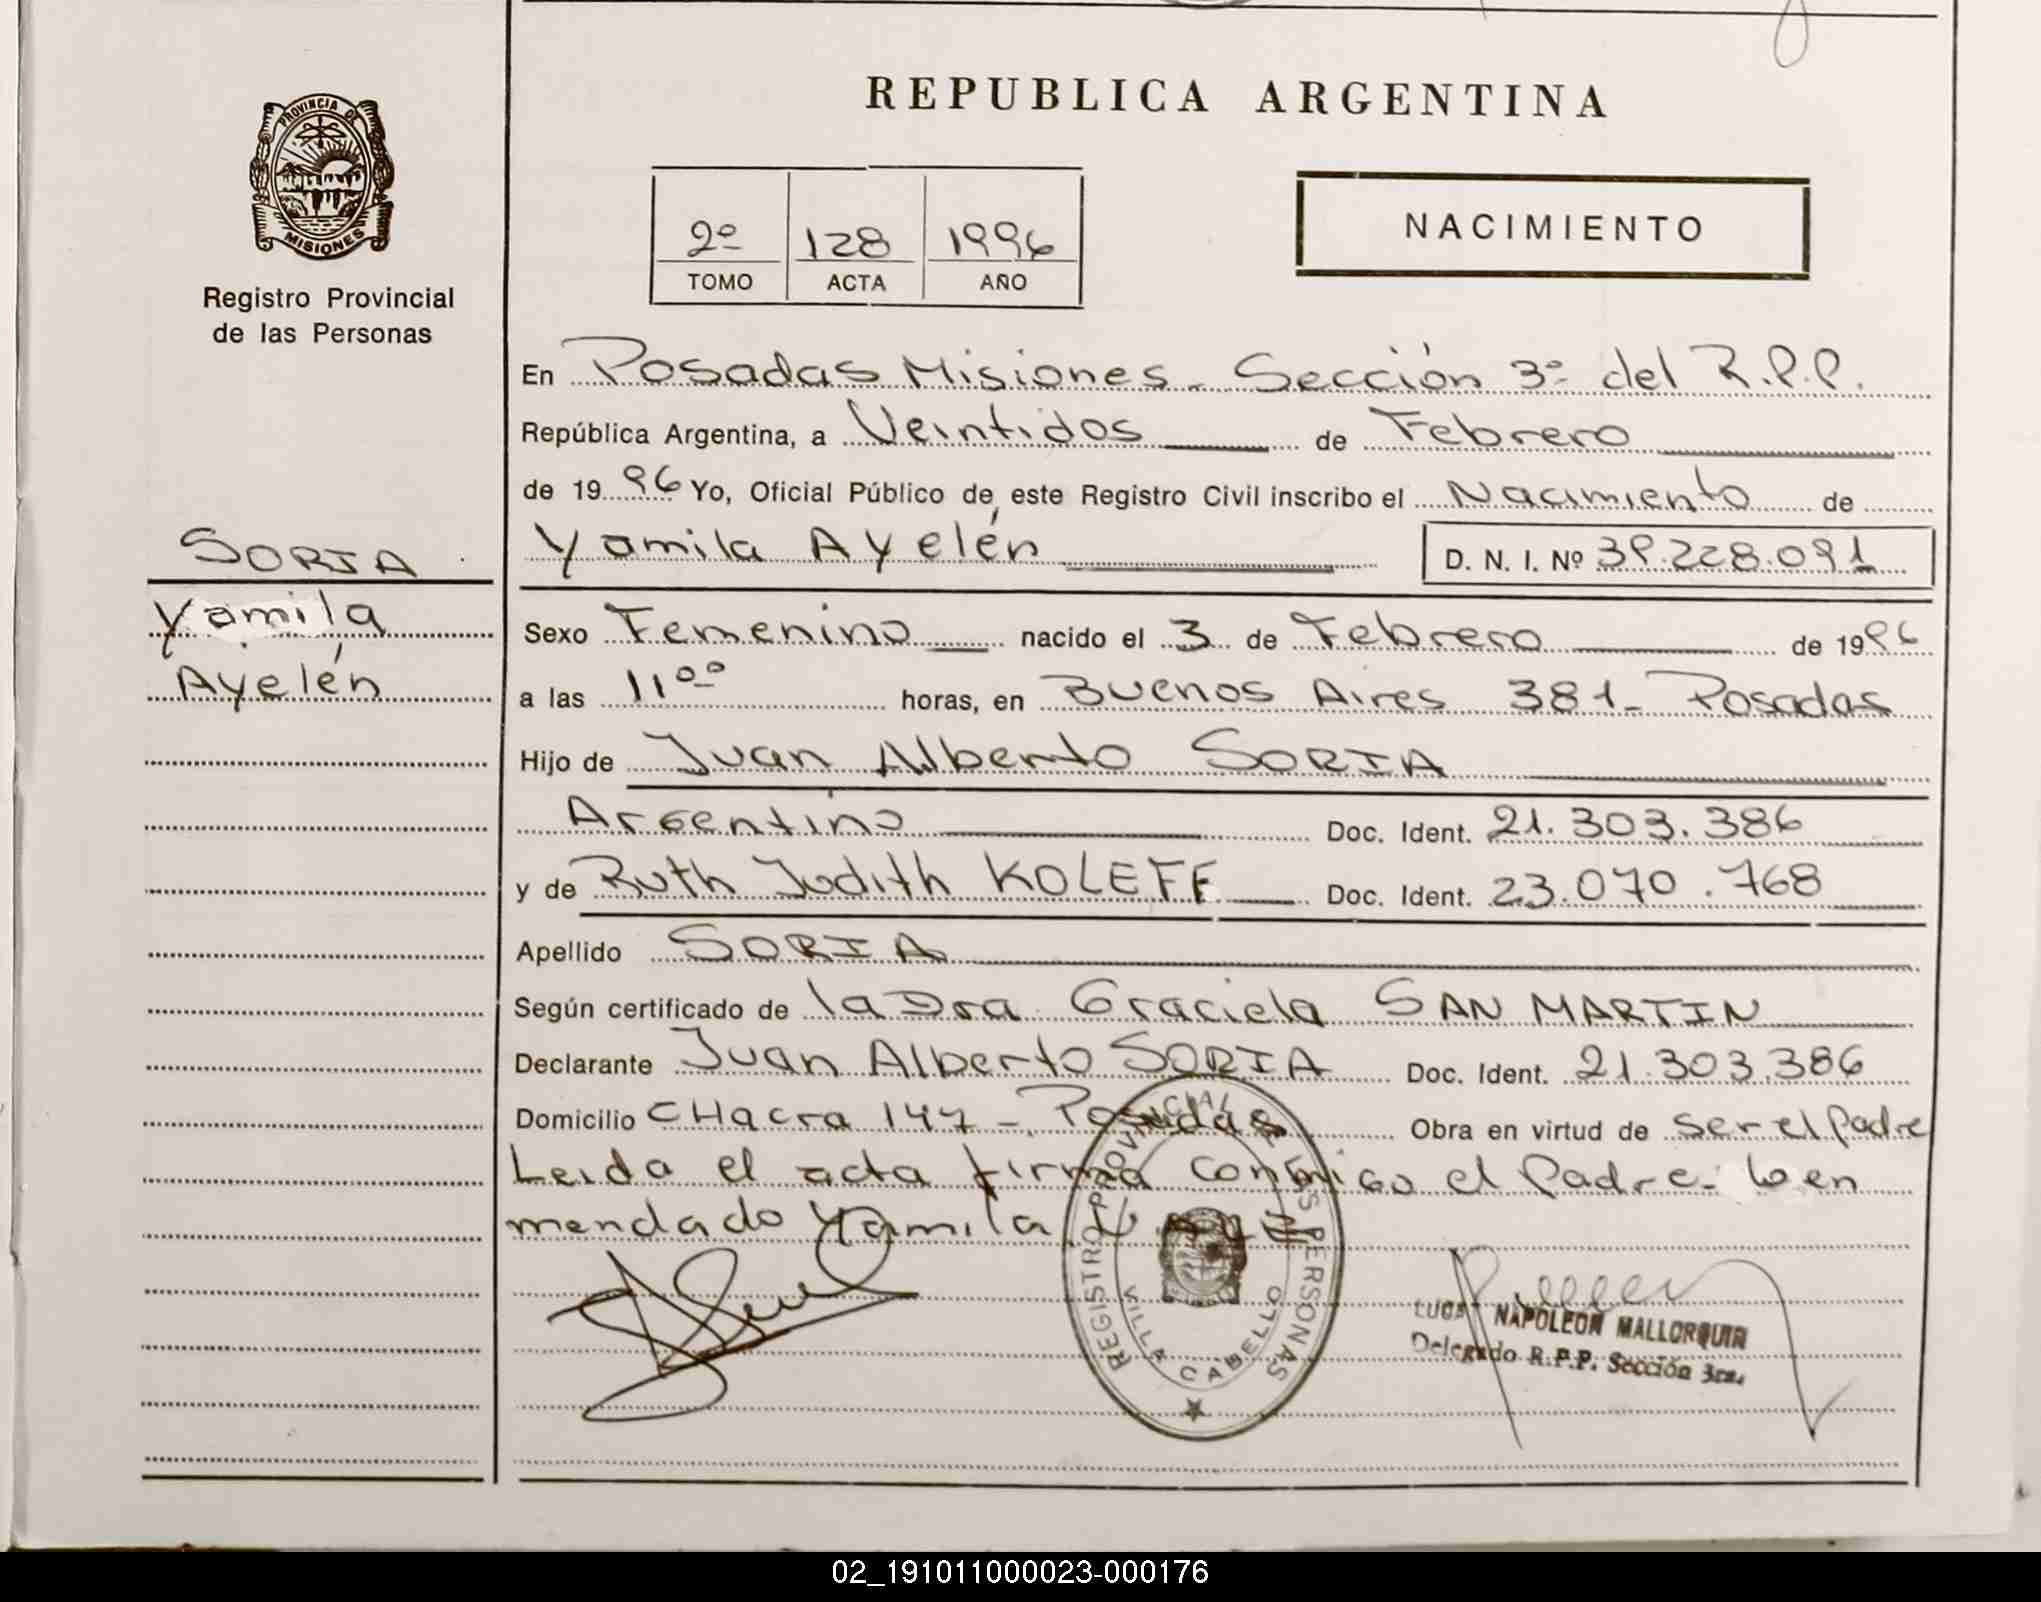 PROVINCIA DE
MISIONES
Registro Provincial
de las Personas
SORIA
Yamila
Ayelén
REPUBLICA ARGENTINA
2º 128 1996
TOMO ACTA AÑO
NACIMIENTO
En Posadas Misiones - Sección 3ª del R.P.P.
República Argentina, a Veintidos de Febrero
de 1996 Yo, Oficial Público de este Registro Civil inscribo el Nacimiento de
Yamila Ayelén D. N. I. Nº 39.228.091
Sexo Femenino nacido el 3 de Febrero de 1996
a las 11⁰⁰ horas, en Buenos Aires 381 - Posadas
Hijo de Juan Alberto SORIA
Argentino Doc. Ident. 21.303.386
y de Ruth Judith KOLEFF Doc. Ident. 23.070.768
Apellido SORIA
Según certificado de la Dra Graciela SAN MARTIN
Declarante Juan Alberto SORIA Doc. Ident. 21.303.386
Domicilio CHacra 147 - Posadas Obra en virtud de ser el Padre
Leida el acta firma conmigo el Padre - lo en
mendado Yamila
REGISTRO PROVINCIAL PERSONAS
VILLA CABELLO
NAPOLEON MALLORQUIN
Delegado R.P.P. Sección 3ra.
02_191011000023-000176